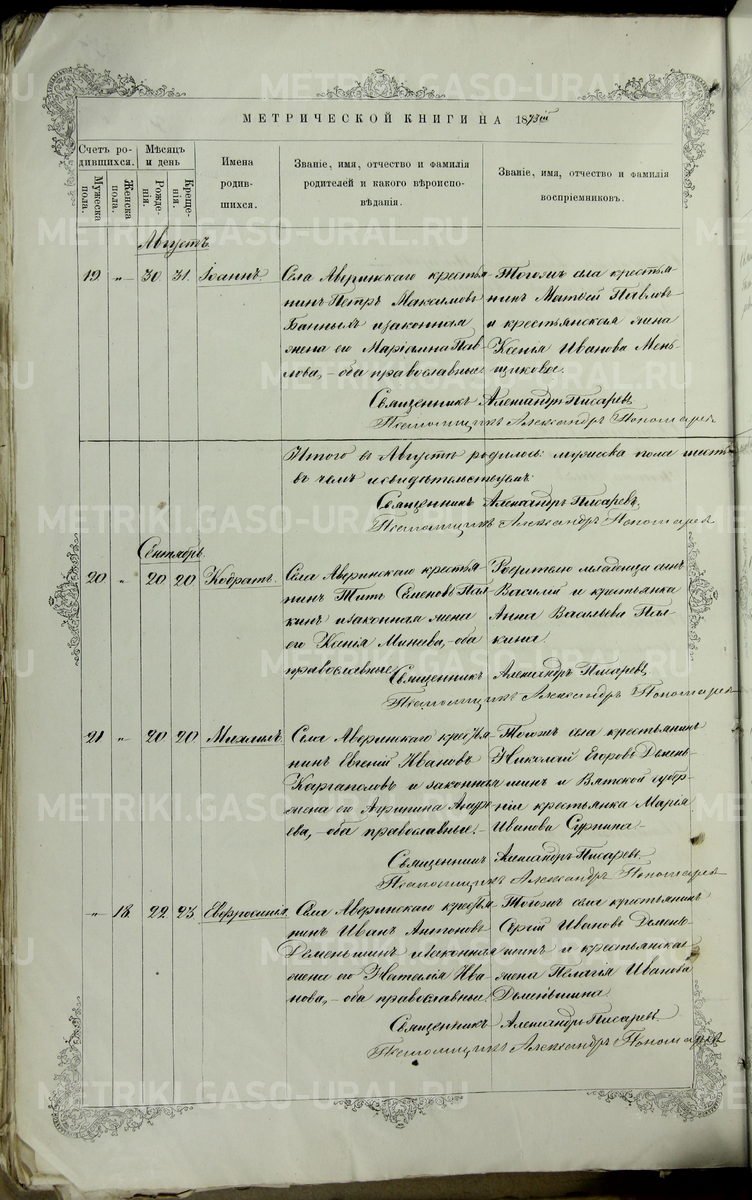 МЕТРИЧЕСКОЙ КНИГИ НА 1873й
Счетъ родившихся.
Мужеска пола.
Женска пола.
Мѣсяцъ и день
Рожденія.
Крещенія.
Имена родившихся.
Званіе, имя, отчество и фамилія родителей и какого вѣроисповѣданія.
Званіе, имя, отчество и фамилія воспріемниковъ.
Августъ.
19 „ 30 31 Іоаннъ.
Села Аверинскаго крестья-
нинъ Петръ Максимовъ
Банныхъ и законная
жена его Маріамна Пав-
лова, – оба православные.
Тогожъ села крестья-
нинъ Матѳей Павловъ
и крестьянская жена
Ксенія Иванова Мень-
щикова.
Священникъ Александръ Писаревъ
Псаломщикъ Александръ Пономаревъ
Итого въ Августѣ родилось: мужеска пола шесть
въ чемъ и свидѣтельствуемъ:
Священникъ Александръ Писаревъ.
Псаломщикъ Александръ Пономаревъ
Сентябрь.
20 „ 20 20 Кодратъ.
Села Аверинскаго крестья-
нинъ Титъ Семеновъ Пал-
кинъ и законная жена
его Ксенія Минеева, – оба
православные
Родителю младенца сынъ
Василій и крестьянка
Анна Васильева Пал-
кина
Священникъ Александръ Писаревъ
Псаломщикъ Александръ Пономаревъ
21 „ 20 20 Михаилъ.
Села Аверинскаго кресья-
нинъ Евгеній Ивановъ
Каргаполовъ и законная
жена его Агрипина
ева, – оба православные. –
Тогожъ села крестьянинъ
Николай Егоровъ Демень-
шинъ и Вятской губер-
ніи крестьянка Марія
Иванова Сурнина. –
Священникъ Александръ Писаревъ.
Псаломщикъ Александръ Пономаревъ
„ 18 22 23 Евфросинія.
Села Аверинскаго крестья-
нинъ Иванъ Антоновъ
Деменьшинъ и законная
жена его Наталія Ива-
нова, – оба православные.
Тогожъ села крестьянинъ
Сергій Ивановъ Демень-
шинъ и крестьянская
жена Пелагія Иванова
Деменьшина.
Священникъ Александръ Писаревъ.
Псаломщикъ Александръ Пономаревъ
METRIKI.GASO-URAL.RU